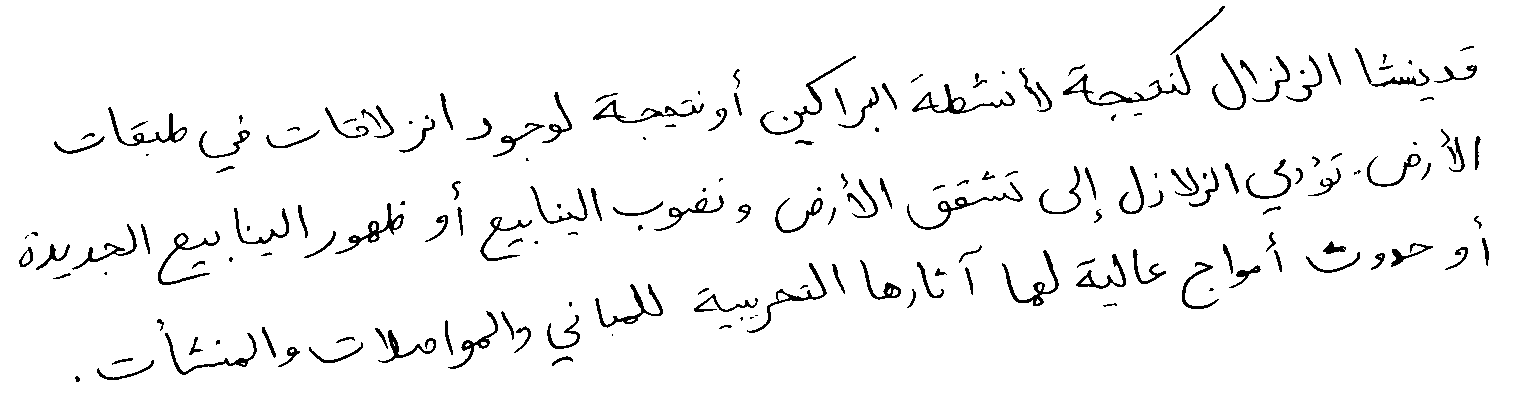 قد ينشا الزلزال كنتيجة لأنشطة البراكين أو نتيجة لوجود انزلاقات في طبقات
الأرض. تؤدي الزلازل إلى تشقق الأرض ونضوب الينابيع أو ظهور الينابيع الجديدة
أو حدوث أمواج عالية لها آثارها التخريبية للمباني والمواصلات والمنشأت.